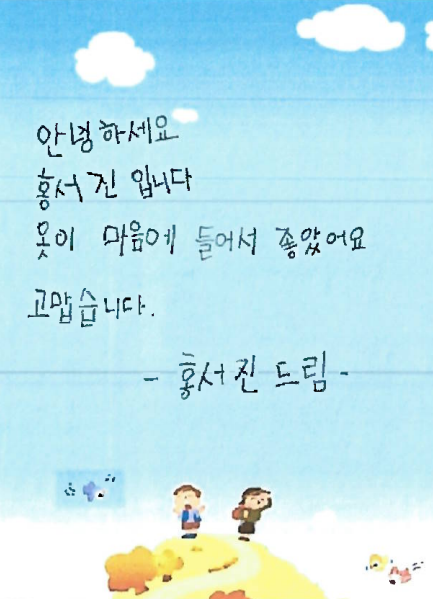 안녕하세요
홍서진 입니다
옷이 마음에 들어서 좋았어요
고맙습니다.
- 홍서진 드림 -